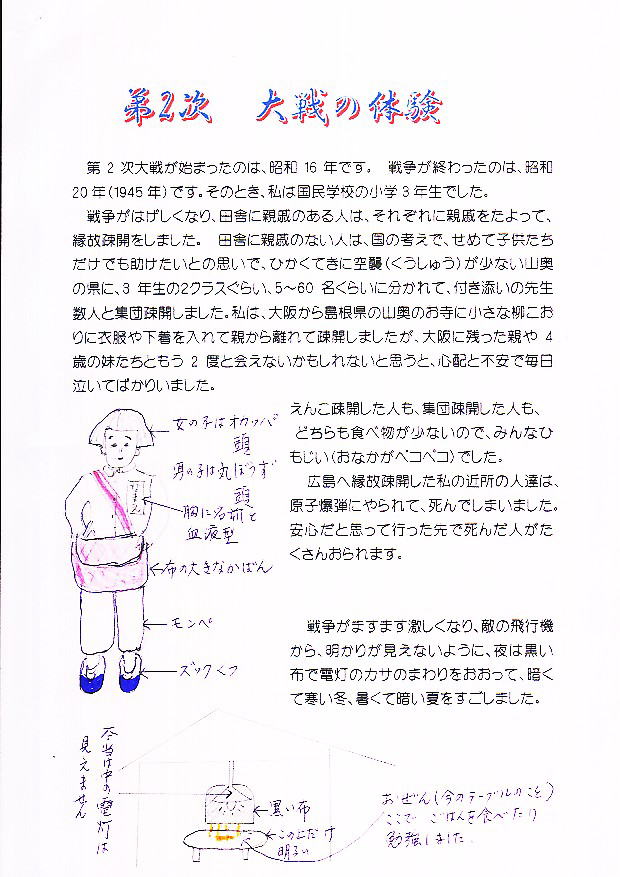 第2次　大戦の体験
第 2 次大戦が始まったのは、昭和 16 年です。 戦争が終わったのは、昭和
20年(1945 年)です。そのとき、私は国民学校の小学3年生でした。
戦争がはげしくなり、田舎に親戚のある人は、それぞれに親戚をたよって、
縁故疎開をしました。 田舎に親戚のない人は、国の考えで、せめて子供たち
だけでも助けたいとの思いで、ひかくてきに空襲(くうしゅう)が少ない山奥
の県に、3 年生の2クラスぐらい、5〜60 名くらいに分かれて、付き添いの先生
数人と集団疎開しました。私は、大阪から島根県の山奥のお寺に小さな柳こお
りに衣服や下着を入れて親から離れて疎開しましたが、大阪に残った親や 4
歳の妹たちともう 2 度と会えないかもしれないと思うと、心配と不安で毎日
泣いてばかりいました。
えんこ疎開した人も、集団疎開した人も、
どちらも食べ物が少ないので、みんなひ
もじい(おなかがペコペコ)でした。
広島へ縁故疎開した私の近所の人達は、
原子爆弾にやられて、死んでしまいました。
安心だと思って行った先で死んだ人がた
くさんおられます。
戦争がますます激しくなり、敵の飛行機
から、明かりが見えないように、夜は黒い
布で電灯のカサのまわりをおおって、暗く
て寒い冬、暑くて暗い夏をすごしました。
女の子はオカッパ
頭
男の子は丸ぼうず
頭
胸に名前と
血液型
布の大きなかばん
モンペ
ズックくつ
本当は中の電灯は
見えません
黒い布
この上だけ
明るい
おぜん(今のテーブルのこと)
ここで ごはんを食べたり
勉強しました。